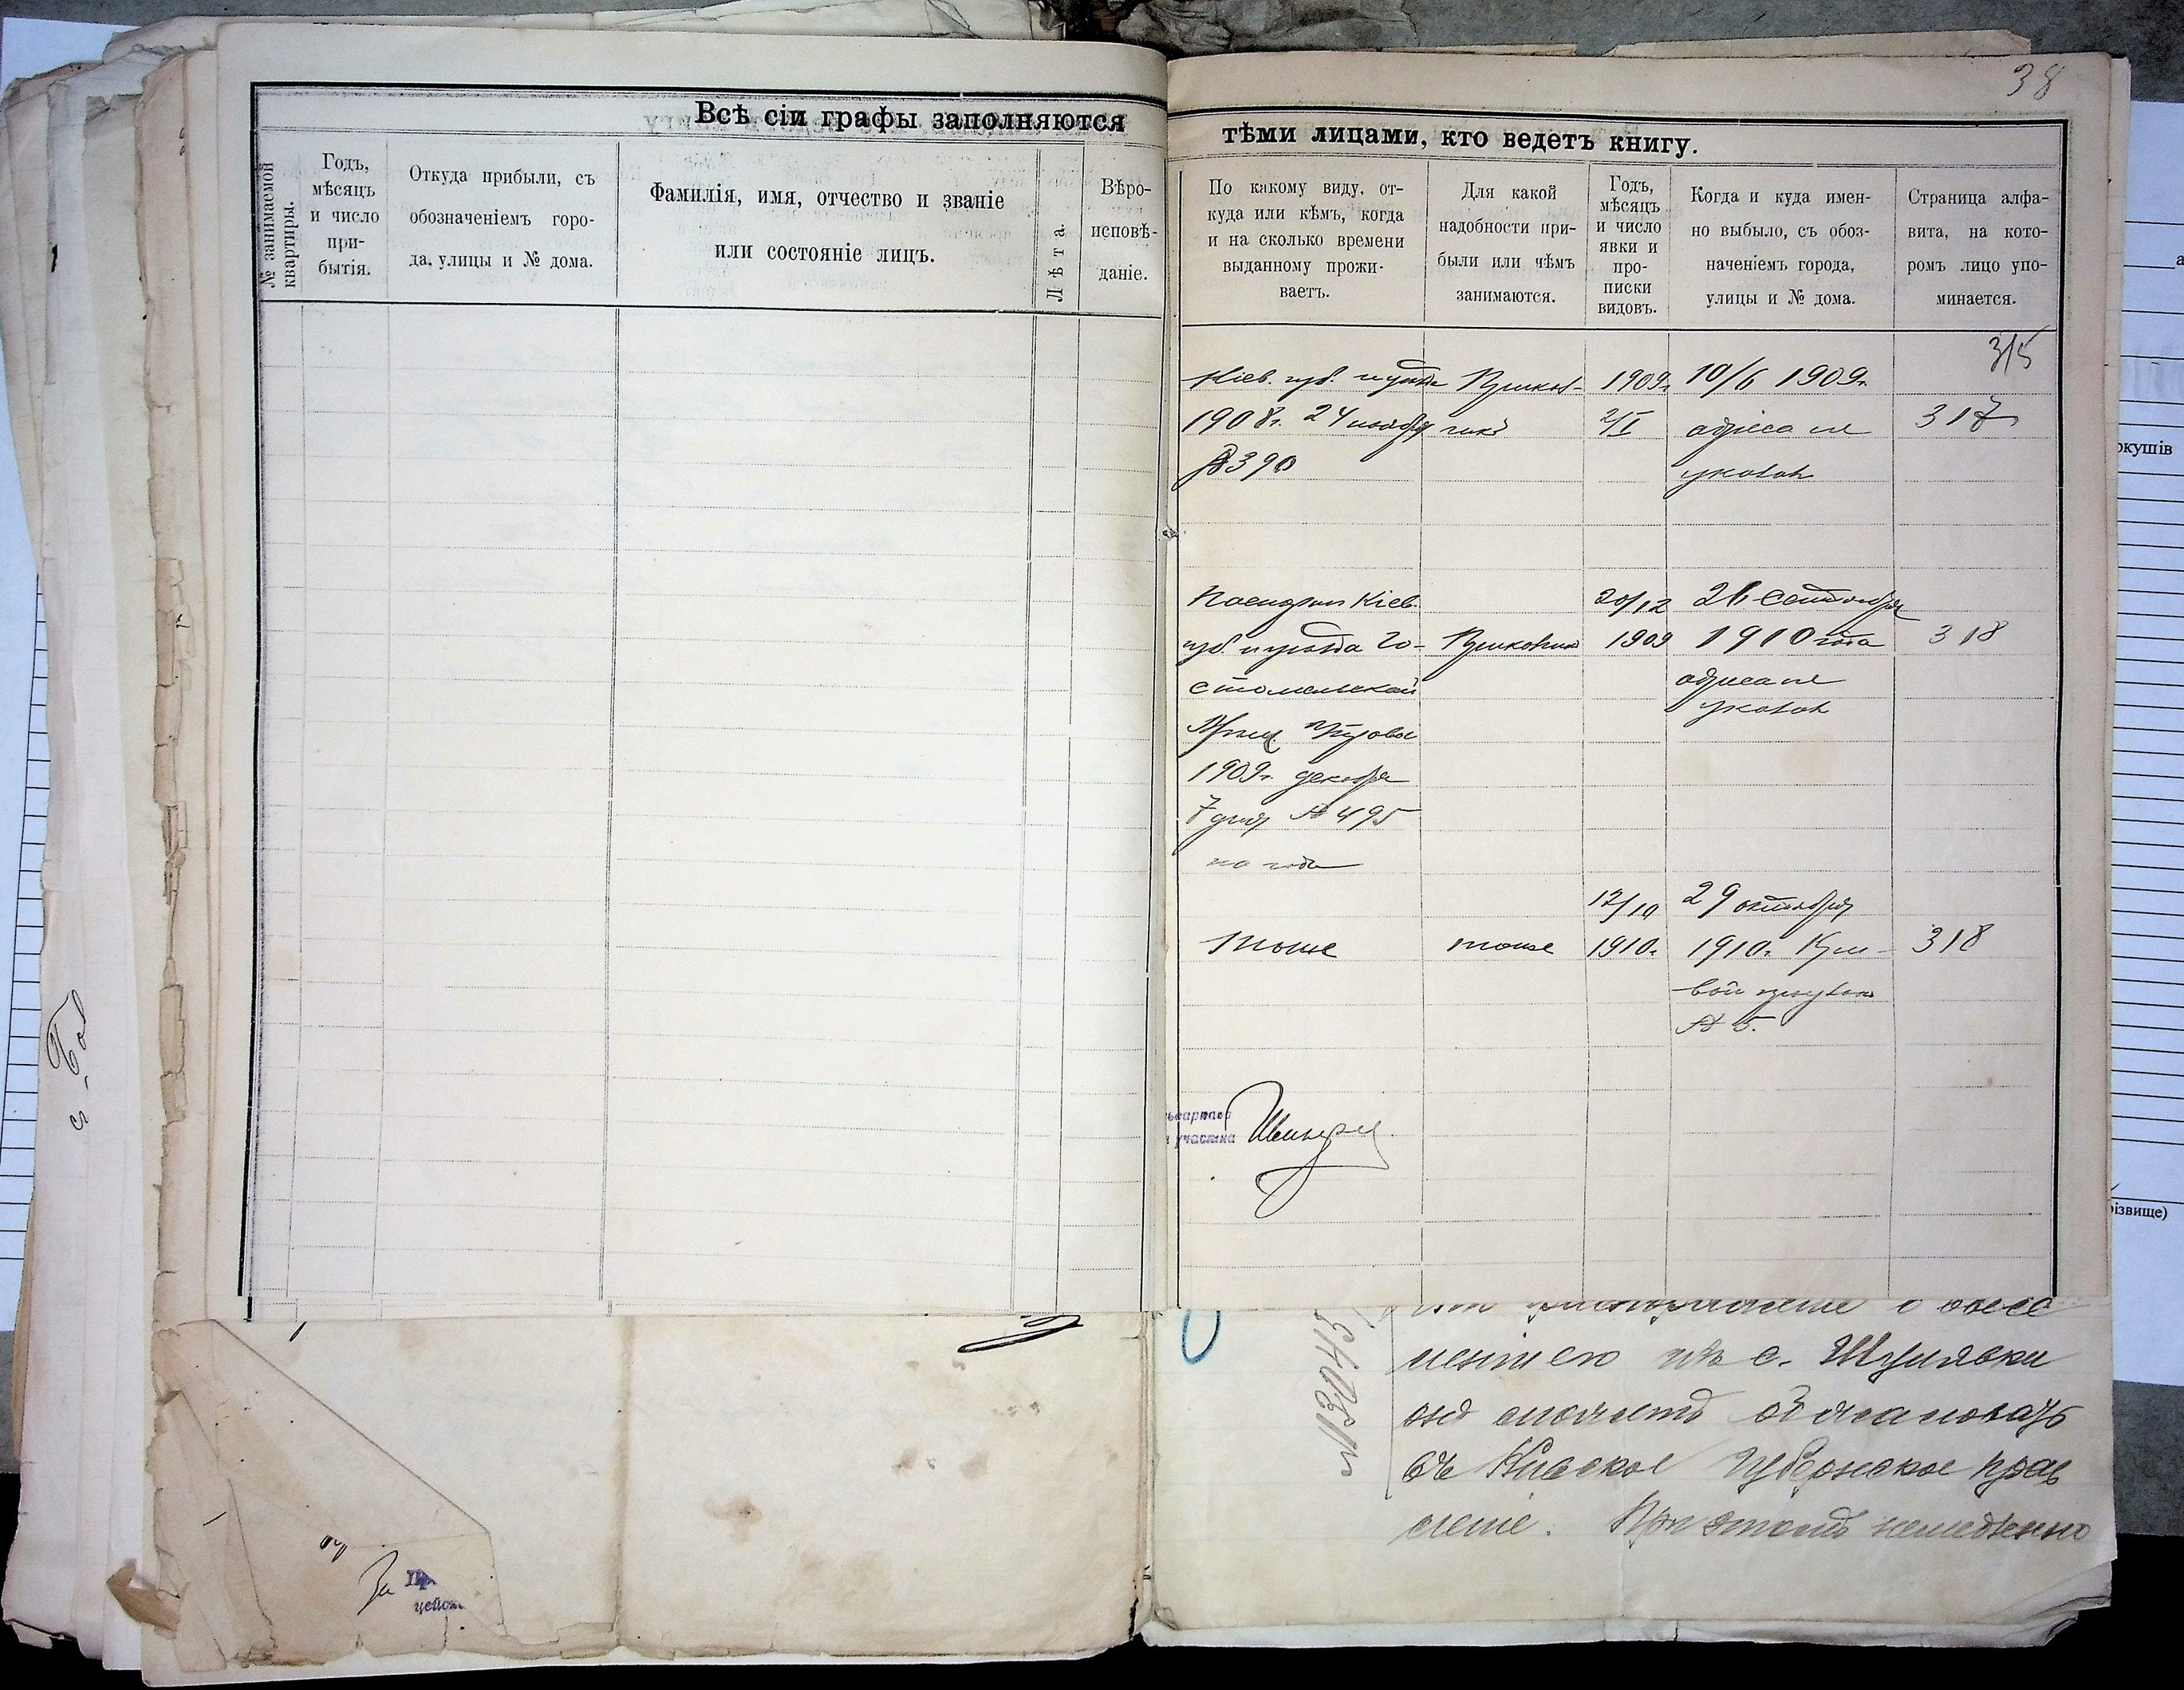 38
Всѣ сіи графы заполняются
№ занимаемой
квартиры.
Годъ,
мѣсяцъ
и число
при-
бытія.
Откуда прибыли, съ
обозначеніемъ горо-
да, улицы и № дома.
Фамилія, имя, отчество и званіе
или состояніе лицъ.
Лѣта
Вѣро-
исповѣ-
даніе.
тѣми лицами, кто ведетъ книгу.
По какому виду, от-
куда или кѣмъ, когда
и на сколько времени
выданному прожи-
ваетъ.
Для какой
надобности при-
были или чѣмъ
занимаются.
Годъ,
мѣсяцъ
и число
явки и
про-
писки
видовъ.
Когда и куда имен-
но выбыло, съ обоз-
наченіемъ города,
улицы и № дома.
Страница алфа-
вита, на кото-
ромъ лицо упо-
минается.
315
Кіев. губ. и уѣзда
1908г. 24 ноября
№390
1909г.
2/I
10/6 1909г.
адреса не
указано
317
Паспортъ Кіев.
губ. и уѣзда Го-
стомельской
1909г. декабря
7 дня № 495
на годъ
20/12
1909
26 Сентября
1910 года
адреса не
указано
318
тоже
тоже
12/10
1910г.
29 октября
1910г.
№ 5.
318
участка
№13043
с. Шулявки
въ Киевское Губернское прав
ление. При этомъ немедленно
За
окушів
ізвище)